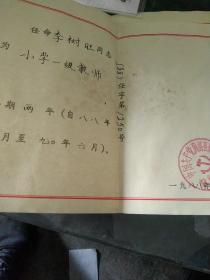 任命李树旺同志
为小学一级教师
期两年(自八八年
月至九〇年六月)。
(88)任字第1350号
一九八八年